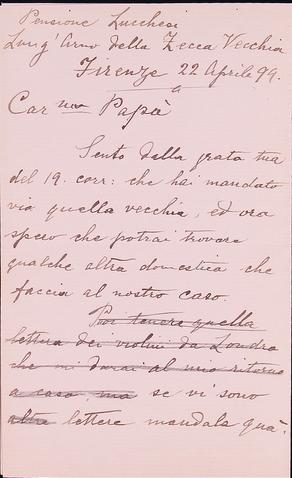 Pensione Lucchesi
Lung'Arno della Zecca Vecchia
Firenze 22 Aprile 99.
Car mo Papà
Sento dalla grata tua
del 19. corr: che hai mandato
via quella vecchia, ed ora
spero che potrai trovare
qualche altra domestica che
faccia al nostro caso.
Puoi tenere quella
lettera dei violini da Londra
che mi darai al mio ritorno
a casa, ma se vi sono
altre lettere mandala quà.